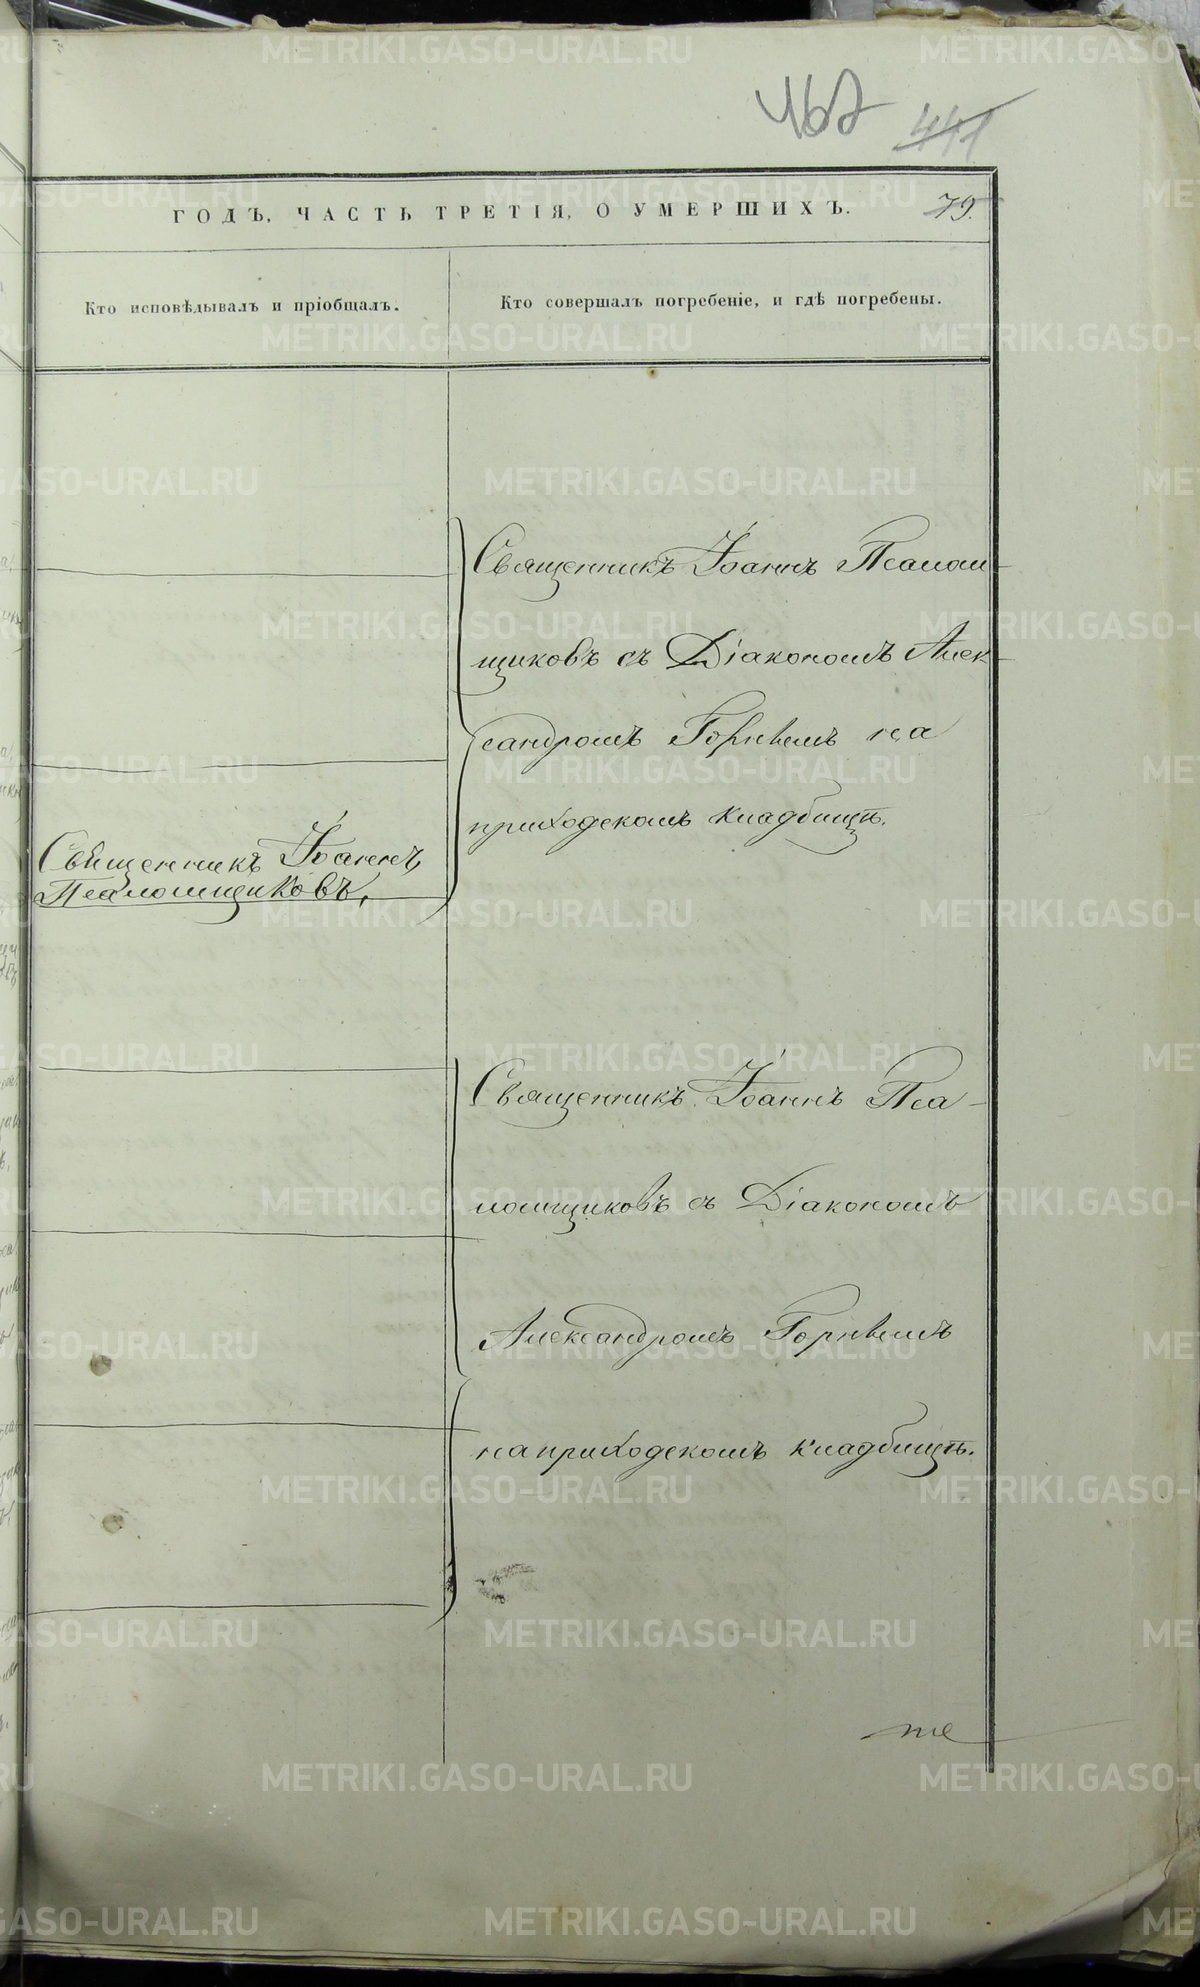 467 441
ГОДЪ, ЧАСТЬ ТРЕТІЯ, О УМЕРШИХЪ. 79.
Кто исповѣдывалъ и пріобщалъ.
Кто совершалъ погребеніе, и гдѣ погребены.
Священникъ Іоаннъ
Псаломщиковъ,
Священникъ Іоаннъ Псалом-
щиковъ съ Діакономъ Алек-
сандромъ Горнѣемъ на
приходскомъ кладбищѣ.
Священникъ Іоаннъ Пса-
ломщиковъ съ Діакономъ
Александромъ Горнѣемъ
на приходскомъ кладбищѣ.
METRIKI.GASO-URAL.RU